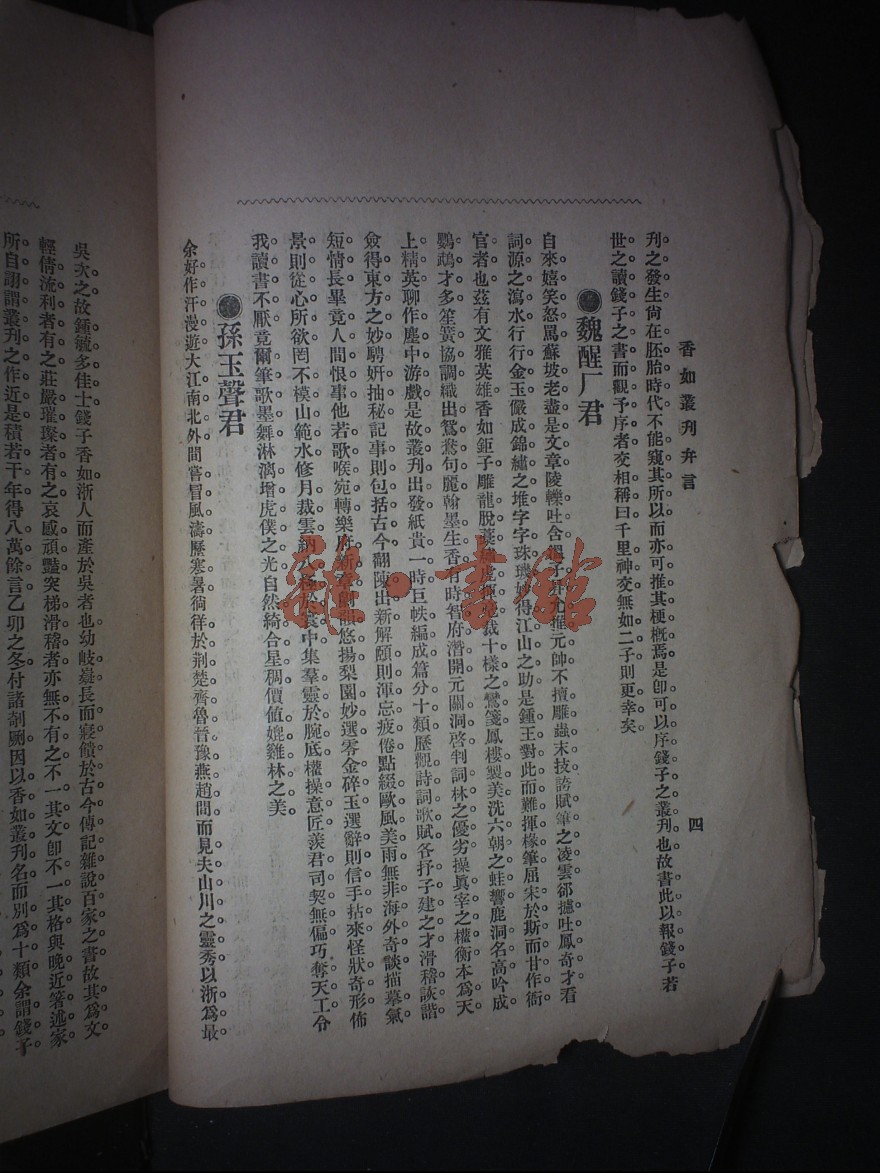 香如叢刊弁言
四
刋之發生尙在胚胎時代不能窺其所以而亦可推其梗槪焉是卽可以序錢子之叢刊也故書此以報錢子若
世之讀錢子之書而觀予序者交相稱曰千里神交無如二子則更幸矣
魏醒厂君
自來嬉笑怒罵蘇坡老盡是文章陵轢吐含楊子雲尤推元帥不擅雕蟲末技誇賦筆之凌雲郤攄吐鳳奇才看
詞源之瀉水行行金玉儼成錦繡之堆字字珠璣妙得江山之助是鍾王對此而難揮椽筆屈宋於斯而甘作衙
官者也茲有文雅英雄香如鉅子雕龍脫葉 虎 裁十樣之鸞箋鳳樓製美洗六朝之蛙響鹿洞名高吟成
鸚鵡才多笙簧協調織出鴛鴦句麗翰墨生香有時智府潛開元關洞啓判詞林之優劣操眞宰之權衡本爲天
上精英聊作塵中游戲是故叢刊出發紙貴一時巨帙編成篇分十類歷觀詩詞歌賦各抒子建之才滑稽詼諧
僉得東方之妙騁妍抽秘記事則包括古今翻陳出新解頤則渾忘疲倦點綴歐風美雨無非海外奇談描摹氣
短情長畢竟人間恨事他若歌喉宛轉樂府新 韻悠揚梨園妙選零金碎玉選辭則信手拈來怪狀奇形佈
景則從心所欲罔不模山範水修月裁雲納八 於 中集羣靈於腕底權操意匠羨君司契無偏巧奪天工令
我讀書不厭竟爾筆歌墨舞淋漓增虎僕之光自然綺合星稠價値媲雞林之美
孫玉聲君
余好作汗漫遊大江南北外間嘗冒風濤歷寒暑徜徉於荆楚齊魯晉豫燕趙間而見夫山川之靈秀以浙爲最
吳次之故鍾毓多佳士錢子香如浙人而產於吳者也幼岐嶷長而寢饋於古今傳記雜說百家之書故其爲文
輕倩流利者有之莊嚴璀璨者有之哀感頑豔突梯滑稽者亦無不有之不一其文卽不一其格與晚近箸述家
所自詡謂叢刊之作近是積若干年得八萬餘言乙卯之冬付諸剞劂因以香如叢刊名而別爲十類余謂錢子
雜·書館